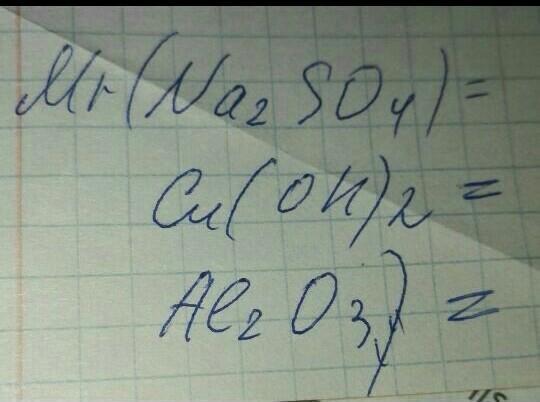 Mr(Na₂SO₄)=
Cu(OH)₂ =
Al₂O₃) =